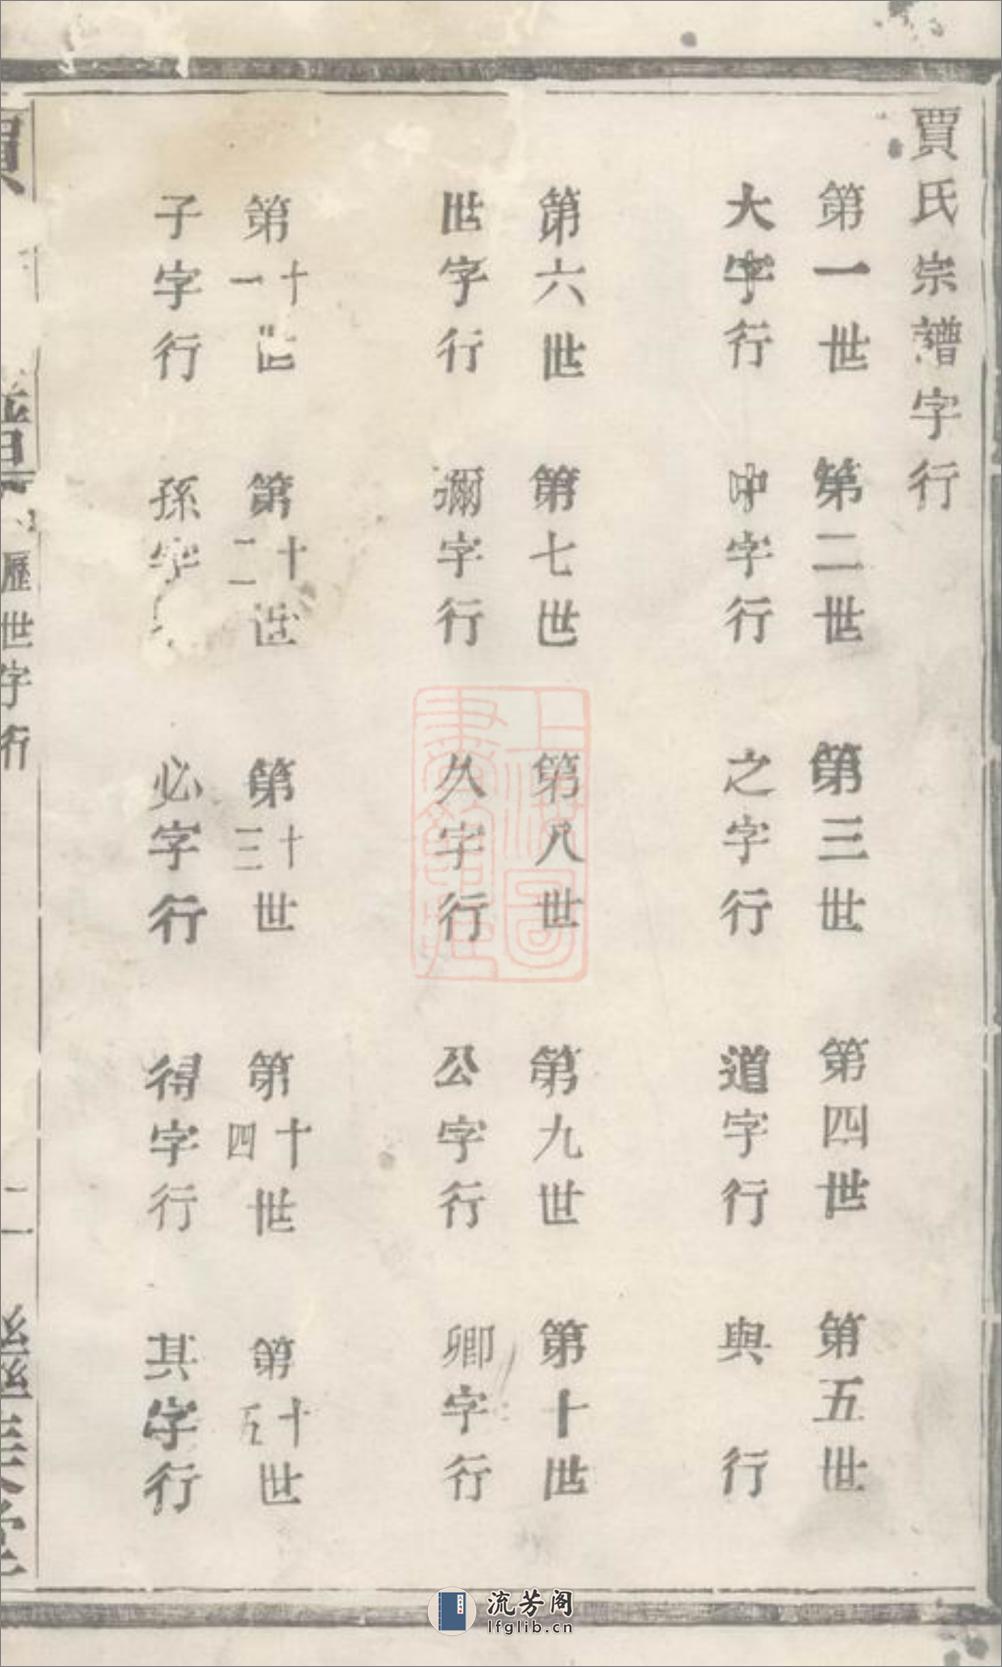 賈氏宗譜字行
第一世 第二世 第三世 第四世 第五世
大字行 中字行 之字行 道字行 與 行
第六世 第七世 第八世 第九世 第十世
世字行 彌字行 久字行 公字行 卿字行
第十一世 第十二世 第十三世 第十四世 第十五世
子字行 孫字 必字行 得字行 其字行
賈 譜 歷世字行 二
上海圖書館藏
流芳阁
lfglib.cn